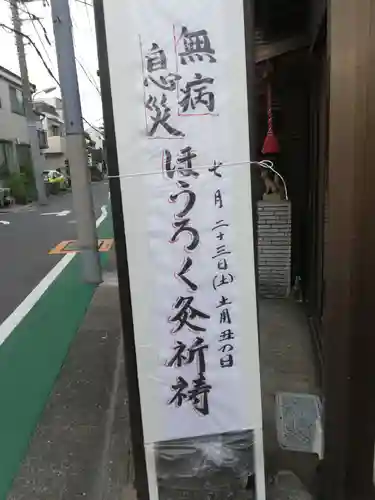 無病
息災
ほうろく灸祈祷
七月二十三日(土)土用丑の日